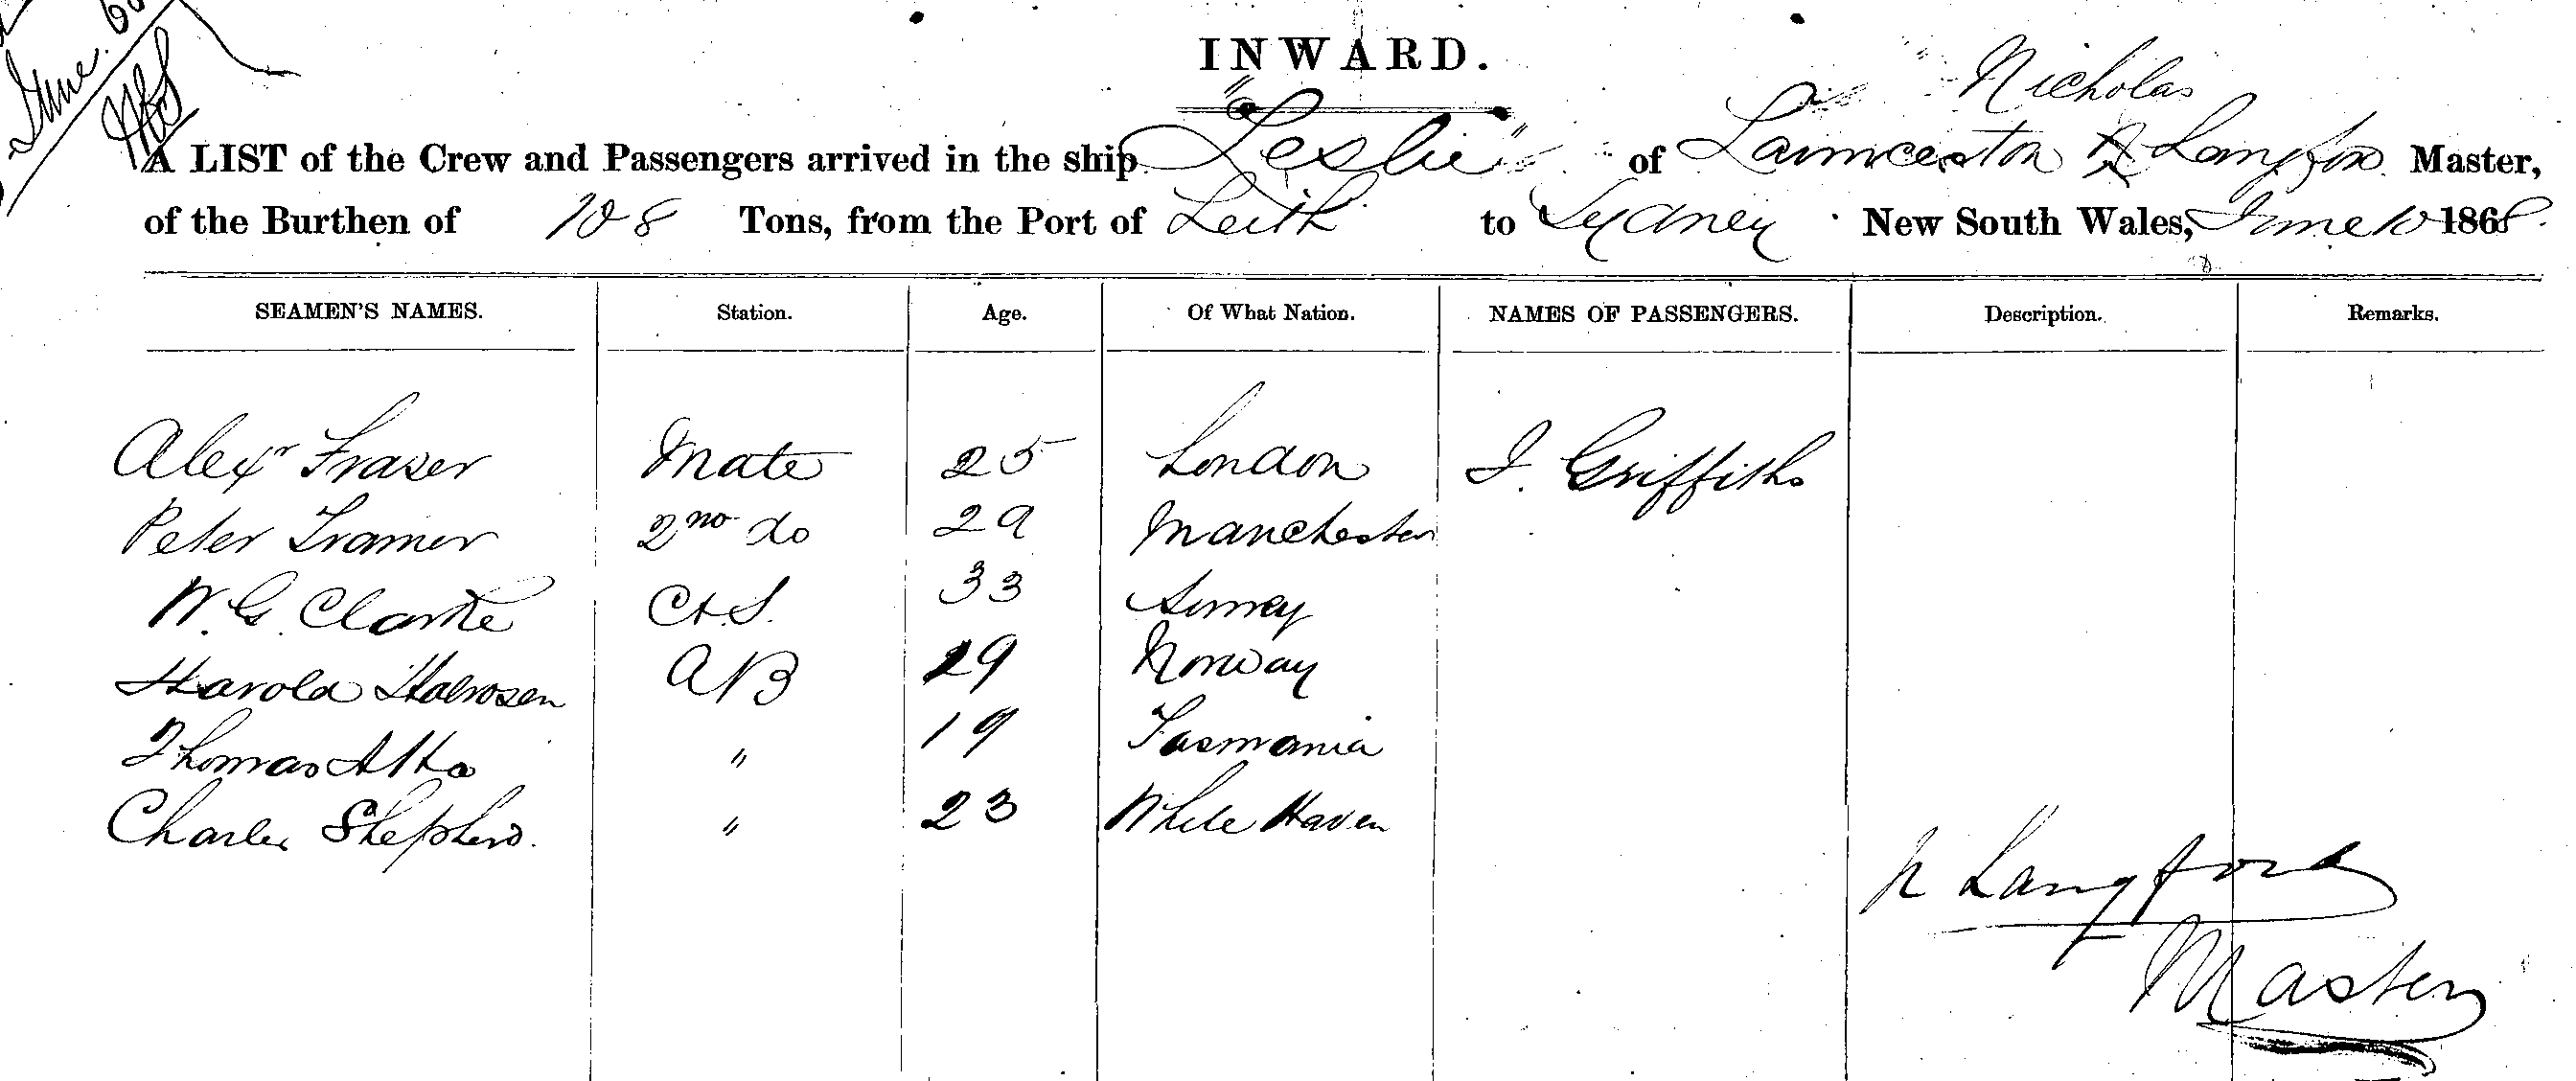 June
INWARD.
Nicholas
A LIST of the Crew and Passengers arrived in the ship "Leslie" of Launceston N Langford Master,
of the Burthen of 108 Tons, from the Port of Leith to Sydney New South Wales, June 10 1868.
SEAMEN'S NAMES. Station. Age. Of What Nation. NAMES OF PASSENGERS. Description. Remarks.
Alexr Fraser Mate 25 London J. Griffiths
Peter 2nd do 29 Manchester
W. G. Clarke C & S. 33 Surrey
Harold AB 29 Norway
Thomas " 19 Tasmania
Charles Shepherd. " 23 White Haven
N Langford
Master